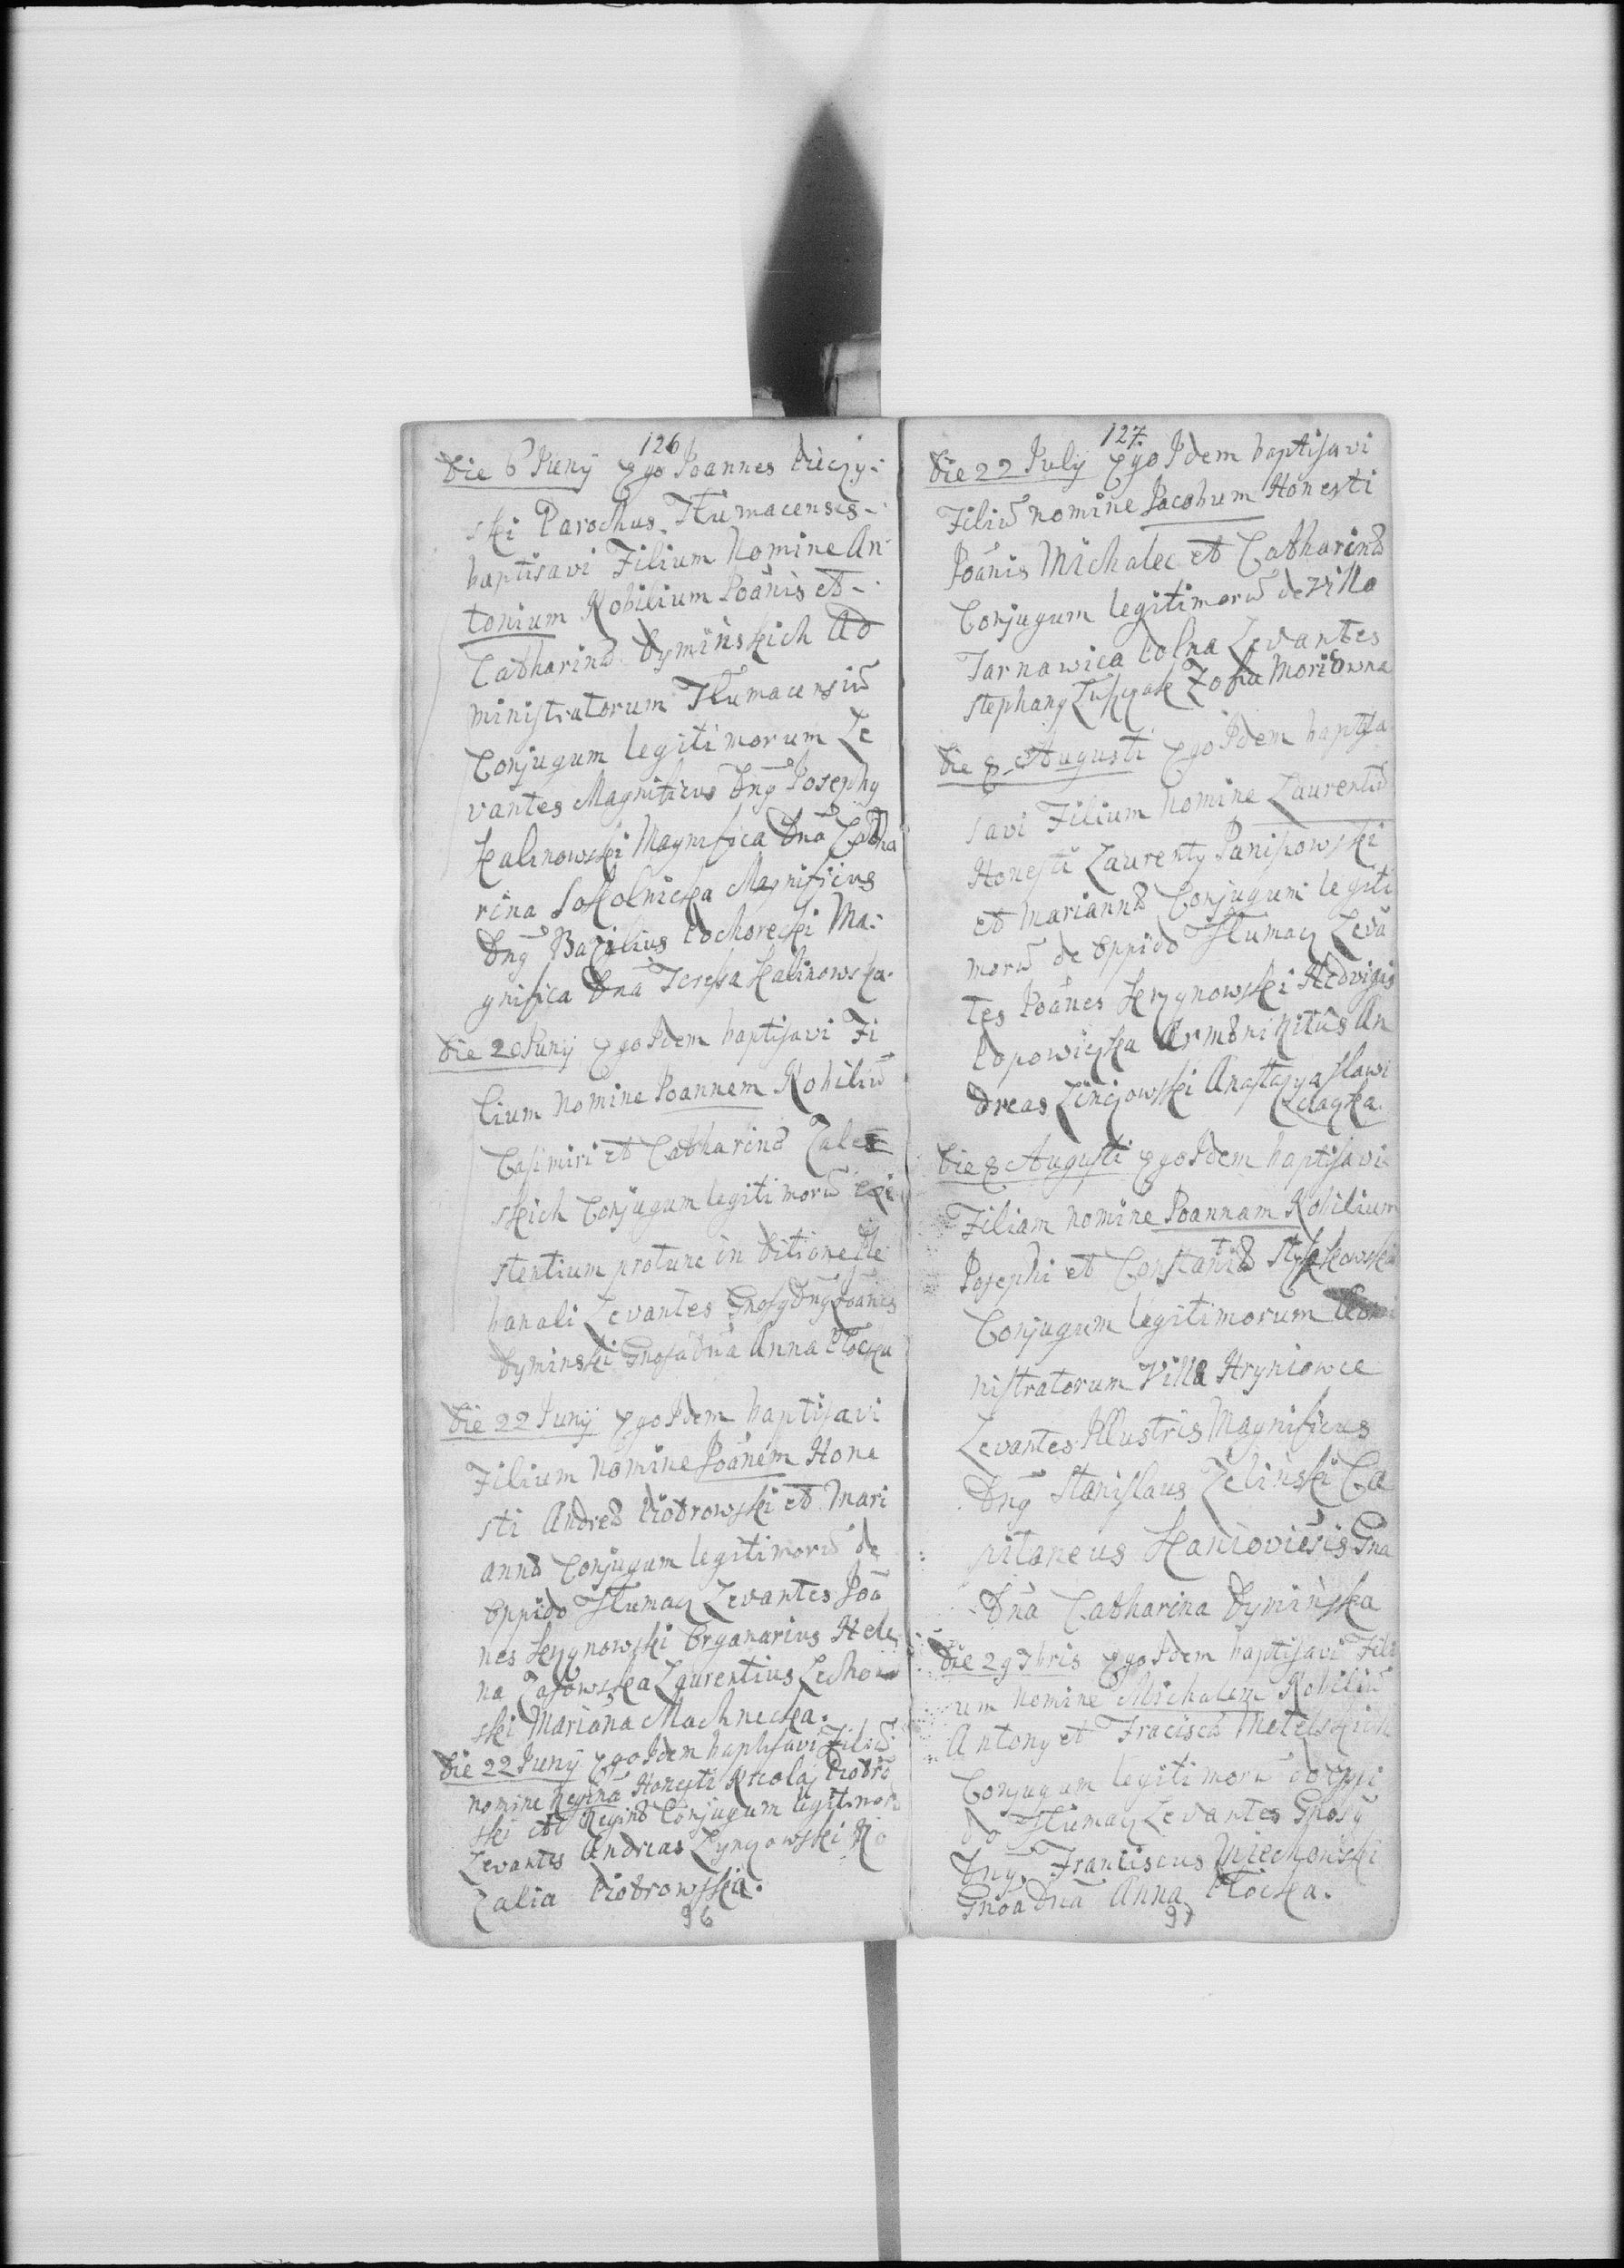 126
Die 6 Juny Ego Joannes Pieczy-
ski Parochus Tłumacensis
baptisavi Filium Nomine An-
tonium Nobilium Joānis et
Catharinæ Dyminskich Ad
ministratorum Tłumacensiū
Conjugum legitimorum Le
vantes Magnificus Dnġ Josephġ
Kalinowski Magnifica Dnā Catha
rina Sokolnicka Magnificus
Dnġ Bazilius Pochorecki Ma-
gnifica Dnā Teresa Kalinowska.
Die 20 Juny Ego Idem baptisavi Fi
lium nomine Joannem Nobiliū
Casimiri et Catharinæ Zale
skich Conjugum legitimorū Exi
stentium protunc in Ditione
banali Levantes Gnosġ Dnġ Joānes
Dyminski Gnosa Dnā Anna Płocka
Die 22 Juny Ego Idem baptisavi
Filium Nomine Joānem Hone
sti Andreæ Piotrowski et Mari
annæ Conjugum legitimorū de
Oppido Tłumacz Levantes Joā
nes Serzynowski Organarius Hele
na Zajowska Laurentius Lechow
ski Mariāna Machnicka.
Die 22 Juny Ego Idem baptisavi Filiā
nomine Reginā Honesti Nicolaj Piotro
ski et Reginæ Conjugum legitimorū
Levantes Andreas Zynzowski Ro
zalia Piotrowska.
96
127.
Die 22 July Ego Idem baptisavi
Filiū nomine Jacobum Honesti
Joānis Michalec et Catharinæ
Conjugum legitimorū de villa
Tarnawica Polna Levantes
Stephang Zofia
Die 8 Augusti Ego Idem baptisa
savi Filium Nomine Laurentiū
Honesti Laurenty Panisowski
et Mariannæ Conjugum legiti
morū de Oppido Tłumacz Levā
tes Joānes Serzynowski Hedvigis
Popowiczka Armæni Ritūs An
dreas Zinczowski Anastazya Slawi
Die 8 Augusti Ego Idem baptisavi
Filiam nomine Joannam Nobilium
Josephi et Constantiæ
Conjugum legitimorum Admi
nistratorum Villæ Hryniowce
Levantes Illustris Magnificus
Dnġ Stanislaus Zelinski Ca
pitaneus Kaniovieṡis Gna
Dnā Catharina Dyminska
Die 29 7bris Ego Idem baptisavi Fili
um nomine Michalem Nobiliū
Antony et Fracisċæ Metelskich
Conjugum legitimorū de Oppi
do Tłumacz Levantes Gnosġ
Dnġ Franciscus Miechowski
Gnosa Dnā Anna Płocka.
97